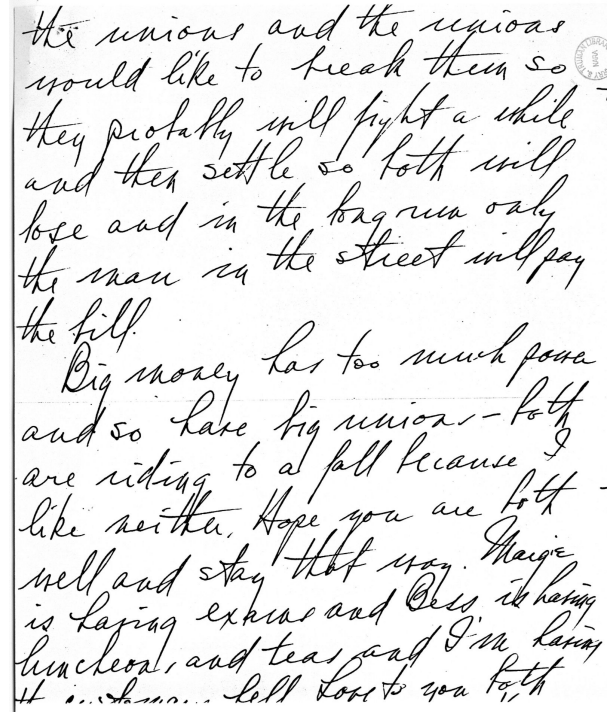 the unions and the unions
would like to break them so
they probably will fight a while
and then settle so both will
lose and in the long run only
the man in the street will pay
the bill.
Big money has too much power
and so have big unions - both
are riding to a fall because I
like neither. Hope you are both
well and stay that way. Margie
is having exams and Bess is having
luncheons and teas and I'm having
hell Love to you both